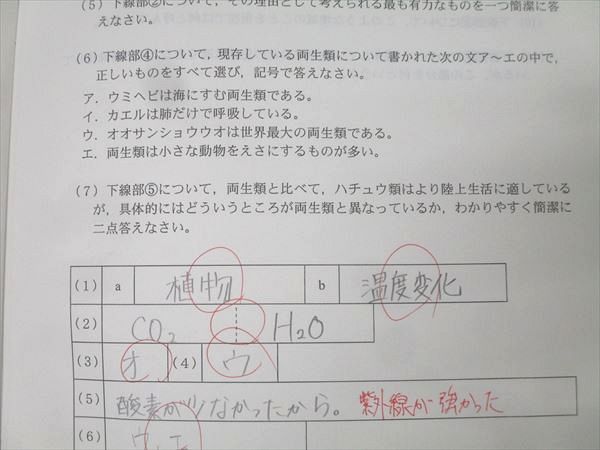 (5) 下線部②について，その理由として考えられる最も有力なものを一つ簡潔に答
えなさい。
(6) 下線部④について，現存している両生類について書かれた次の文ア～エの中で，
正しいものをすべて選び，記号で答えなさい。
ア．ウミヘビは海にすむ両生類である。
イ．カエルは肺だけで呼吸している。
ウ．オオサンショウウオは世界最大の両生類である。
エ．両生類は小さな動物をえさにするものが多い。
(7) 下線部⑤について，両生類と比べて，ハチュウ類はより陸上生活に適している
が，具体的にはどういうところが両生類と異なっているか，わかりやすく簡潔に
二点答えなさい。
(1) a 植物 b 温度変化
(2) CO₂ H₂O
(3) オ (4) ウ
(5) 酸素が少なかったから。 紫外線が強かった
(6) ウ、エ